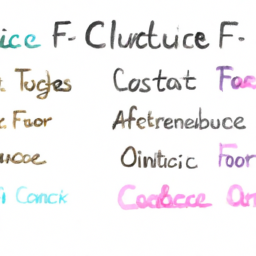 ice F- Cluctuice F-
Tugles Costat Foc
Foor Afetrenebuce
uoce Oiniticic Foor
Canck Codbcce On